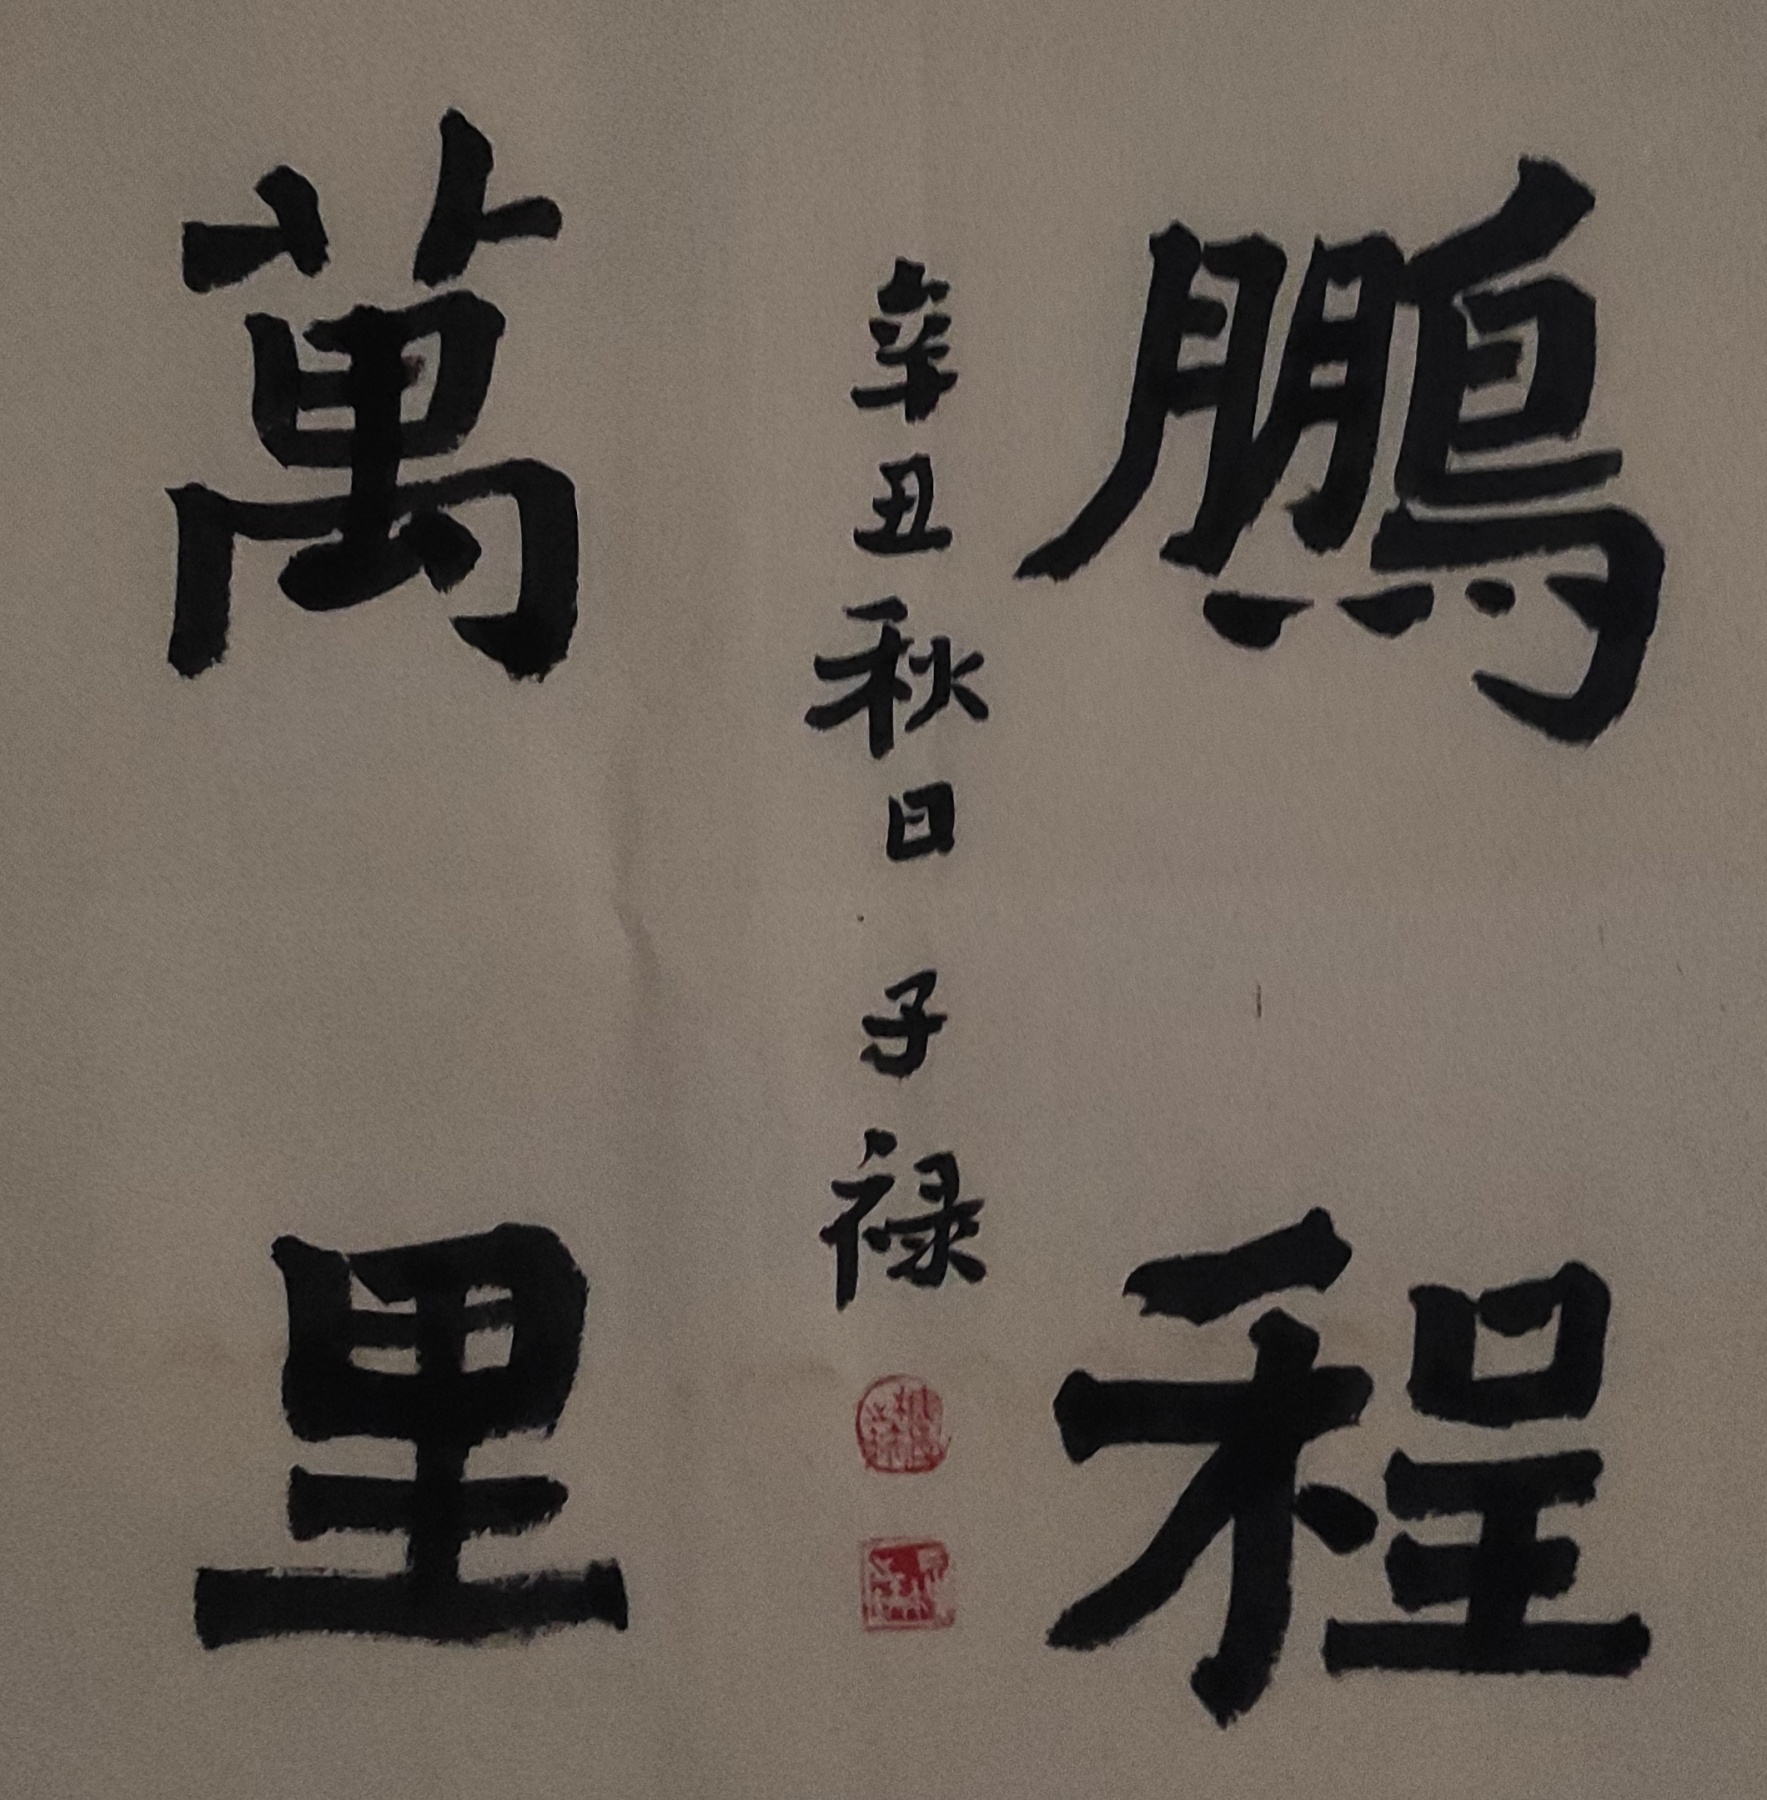 鵬程
辛丑秋日 子禄
萬里